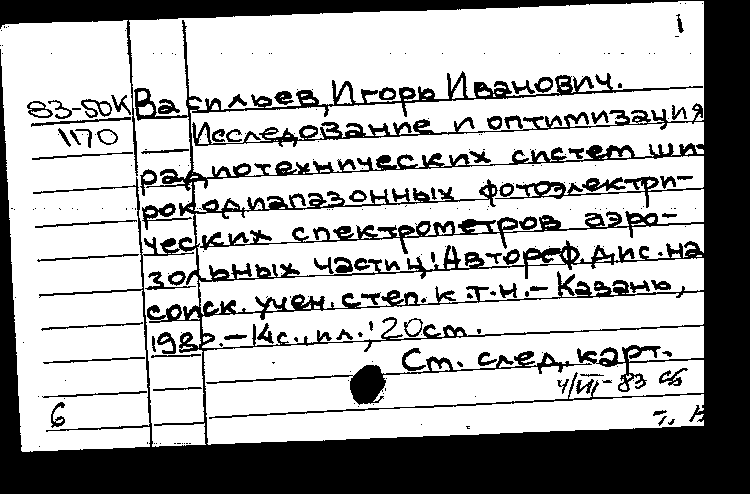 1
83-50К Васильев, Игорь Иванович.
1170 Исследование и оптимизация
радиотехнических систем ши-
рокодиапазонных фотоэлектри-
ческих спектрометров аэро-
зольных частиц: Автореф. дис. на
соиск. учен. степ. к.т.н. - Казань,
1982. - 14с., ил.; 20см.
См. след. карт.
4/VII-83 сб
6